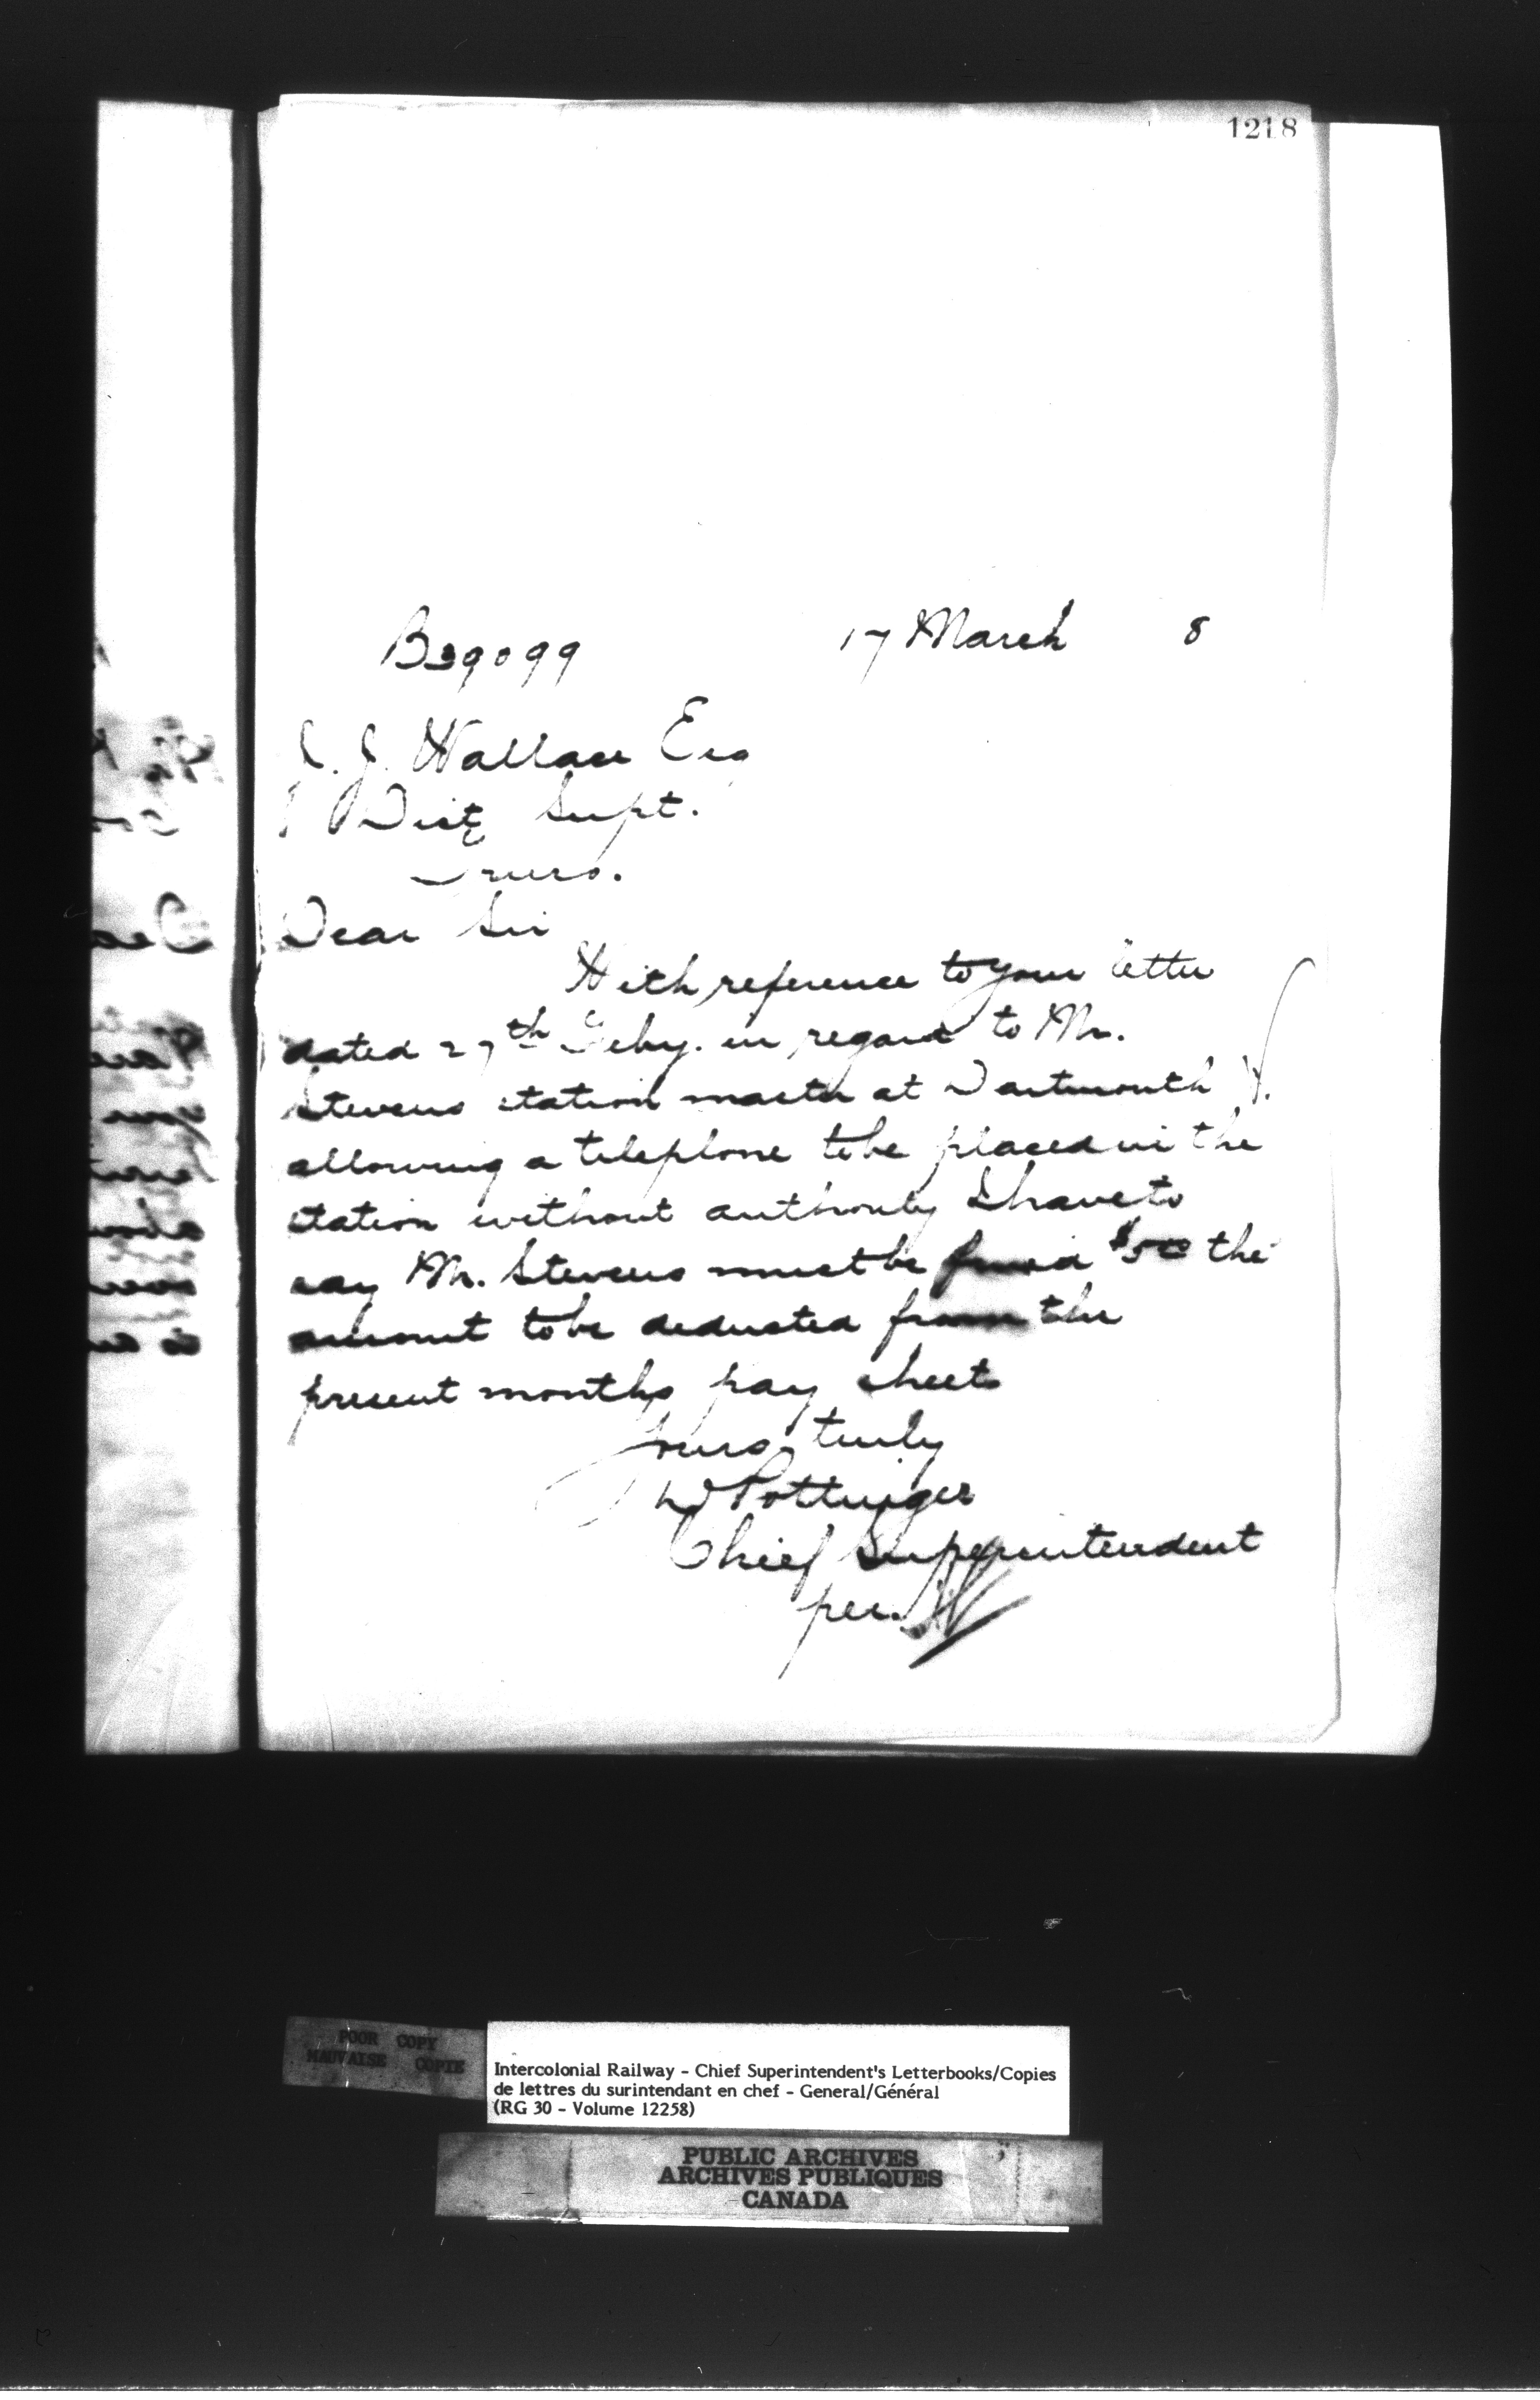 1218
B39099 17 March 8
J. J. Wallace Esq
Dist Supt.
Truro.
Dear Sir
With reference to your letter
dated 27th Feby. in regard to Mr.
Stevens station master at Dartmouth
allowing a telephone to be placed in the
station without authority I have to
say Mr. Stevens must be fined $5 00 the
amount to be deducted from the
present months pay sheets
Yours truly
D Pottinger
Chief Superintendent
per.
POOR COPY
MAUVAISE COPIE
Intercolonial Railway - Chief Superintendent's Letterbooks/Copies
de lettres du surintendant en chef - General/Général
(RG 30 - Volume 12258)
PUBLIC ARCHIVES
ARCHIVES PUBLIQUES
CANADA